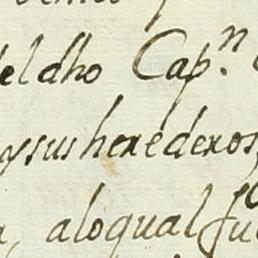 el dho Cap.ⁿ
y sus herederos,
a lo qual fu